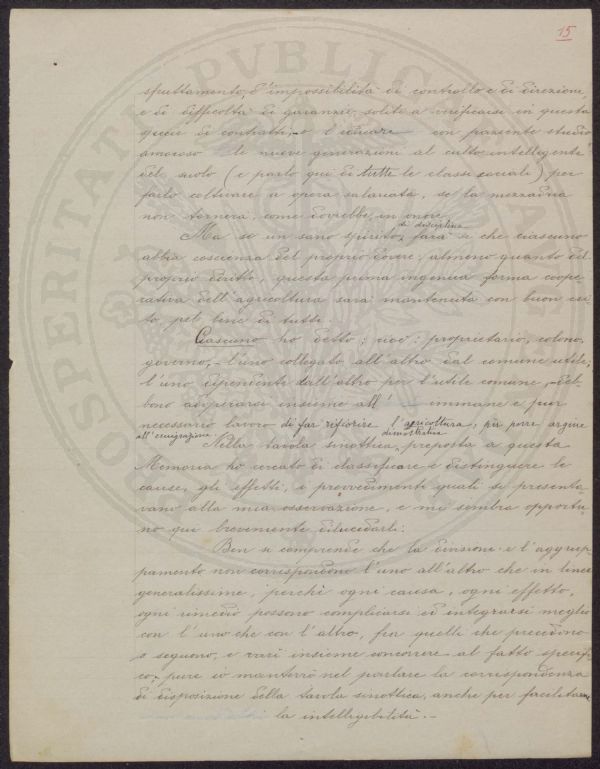 15
sfruttamento, d'impossibilità di controllo e di direzione,
e di difficoltà di garanzie, solite a verificarsi in questa
specie di contratti, e l'educare con paziente studio
amoroso le nuove generazioni al culto intelligente
del suolo (e parlo qui di tutte le classi sociali) per
farlo coltivare a opera salariata, se la mezzadria
non tornerà, come dovrebbe, in onore.
Ma se un sano spirito di disciplina farà sì che ciascuno
abbia coscienza del proprio dovere, almeno quanto del
proprio diritto, questa prima ingenua forma coope-
rativa dell'agricoltura sarà mantenuta con buon esi-
to pel bene di tutti.
Ciascuno ho detto; cioè: proprietario, colono,
governo, - l'uno collegato all'altro dal comune utile;
l'uno dipendente dall'altro per l'utile comune, - deb-
bono adoperarsi insieme all' immane e pur
necessario lavoro di far rifiorire l'agricoltura, per porre argine
all'emigrazione.
Nella tavola sinottica dimostrativa preposta a questa
Memoria ho cercato di classificare e distinguere le
cause, gli effetti, i provvedimenti quali si presenta-
vano alla mia osservazione, e mi sembra opportu-
no qui brevemente dilucidarli:
Ben si comprende che la divisione e l'aggrup-
pamento non corrispondono l'uno all'altro che in linea
generalissima, perchè ogni causa, ogni effetto,
ogni rimedio possono complicarsi ed integrarsi meglio
con l'uno che con l'altro, fra quelli che precedono
o seguono, e varî insieme concorrere al fatto specifi-
co, pure io manterrò nel parlare la corrispondenza
di disposizione della tavola sinottica, anche per facilitarne
la intelligibilità. -